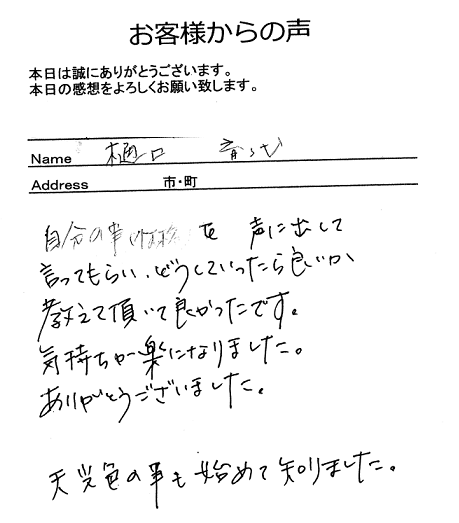 お客様からの声
本日は誠にありがとうございます。
本日の感想をよろしくお願い致します。
Name 樋口
Address 市・町
自分の事 を 声に出して
言ってもらい、どうしていったら良いか、
教えて頂いて良かったです。
気持ちが楽になりました。
ありがとうございました。
の事も始めて知りました。